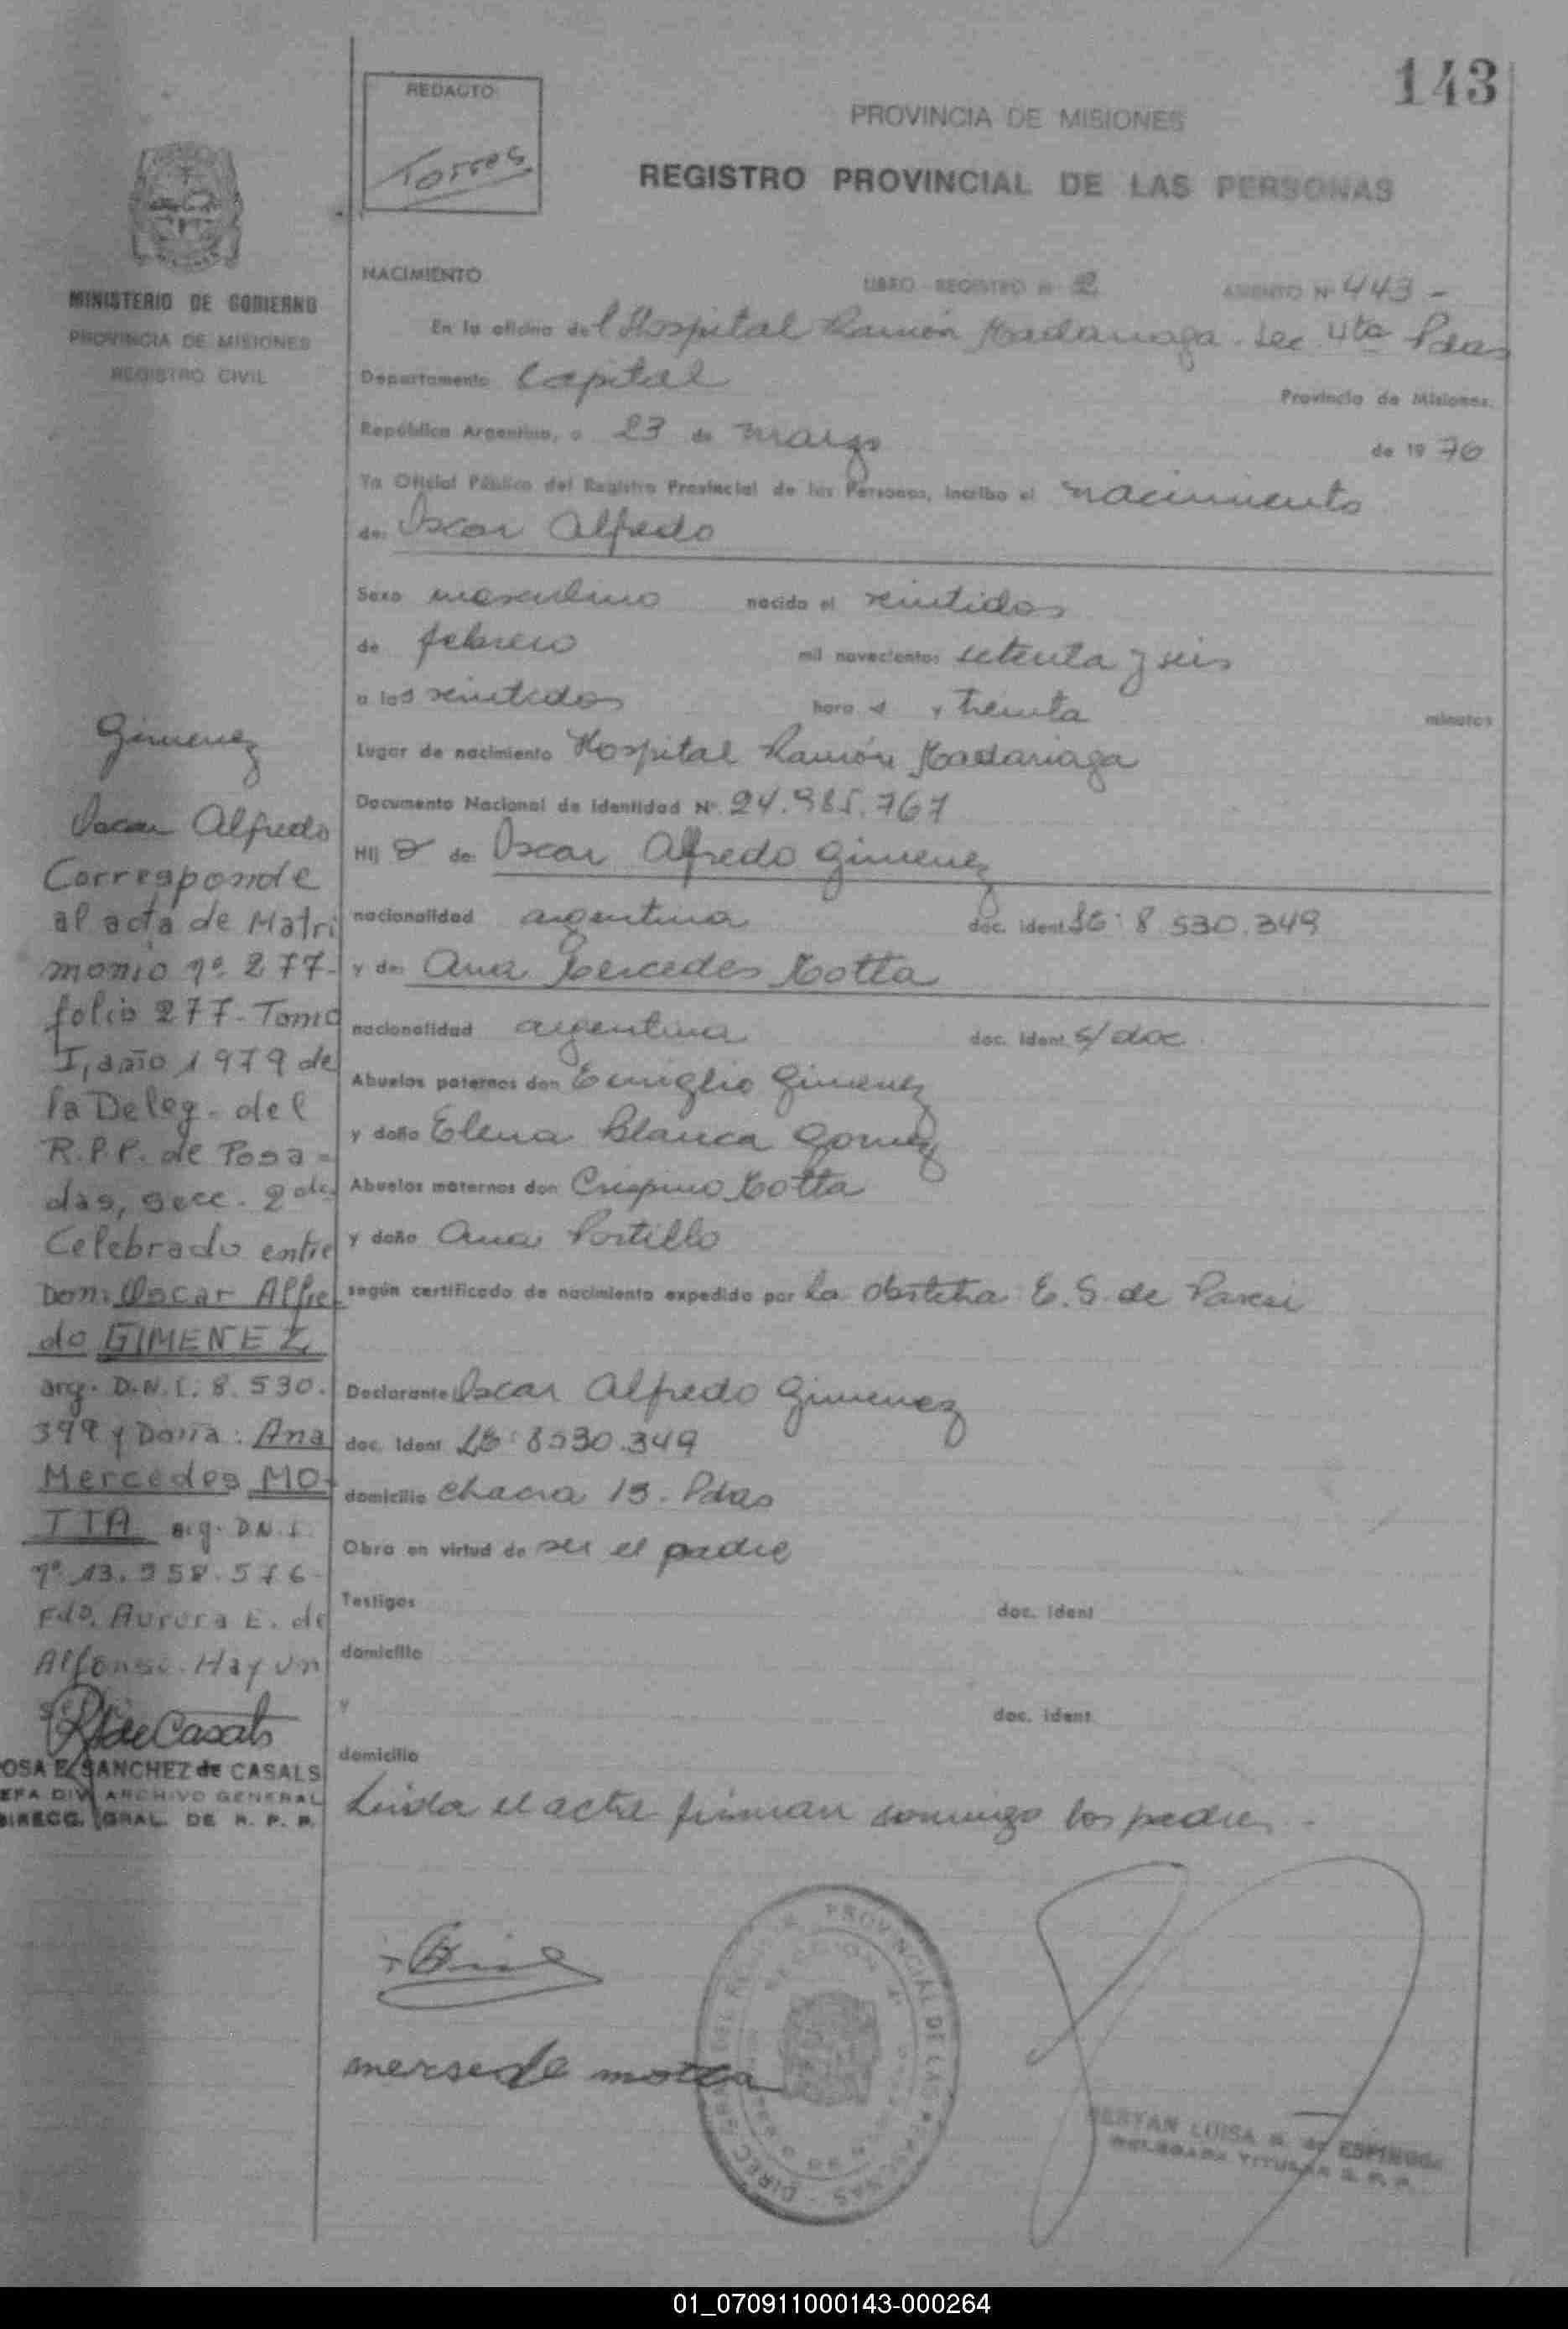 143
REDACTO
Torres
PROVINCIA DE MISIONES
REGISTRO PROVINCIAL DE LAS PERSONAS
MINISTERIO DE GOBIERNO
PROVINCIA DE MISIONES
REGISTRO CIVIL
NACIMIENTO LIBRO REGISTRO Nº 2 ASIENTO Nº 443 -
En la oficina del Hospital Ramón Madariaga. Sec. 4ta Pdas
Departamento Capital Provincia de Misiones.
República Argentina, a 23 de marzo de 1976
Yo Oficial Público del Registro Provincial de las Personas, inscribo el nacimiento
de: Oscar Alfredo
Sexo masculino nacido el veintidos
de febrero mil novecientos setenta y seis
a las veintidos hora s y treinta minutos
Lugar de nacimiento Hospital Ramón Madariaga
Documento Nacional de Identidad Nº. 24.985.767
Hij o de: Oscar Alfredo Gimenez
nacionalidad argentina doc. ident. LE: 8.530.349
y de: Ana Mercedes Motta
nacionalidad argentina doc. ident. s/doc.
Abuelos paternos don Emiglio Gimenez
y doña Elena Blanca Gomez
Abuelos maternos don Crispino Motta
y doña Ana Portillo
según certificado de nacimiento expedido por la obstetra E. S. de
Declarante Oscar Alfredo Gimenez
doc. ident. LE: 8530.349
domicilio chacra 13. Pdas
Obra en virtud de ser el padre
Testigos doc. ident
domicilio
y doc. ident.
domicilio
Leida el acta firman conmigo los padres.-
Gimenez
Oscar Alfredo
Corresponde
al acta de Matri
monio nº 277-
folio 277- Tomo
I, año 1979 de
la Deleg. del
R.P.P. de Posa=
das, secc. 2da
Celebrado entre
Don: Oscar Alfre
do GIMENEZ
arg. D.N.I. 8.530.
349 y Doña: Ana
Mercedes MO-
TTA arg. D.N.I.
nº 13.958.576-
Fdo. Aurora E. de
Alfonso. Hay un
R de Casals
OSA E. SANCHEZ de CASALS
EFA DIV. ARCHIVO GENERAL
DIRECC. GRAL. DE R. P. P.
mersede motta
PROVINCIAL DE LAS PERSONAS - DIREC
LUISA DE ESPINOSA
DELEGADA TITULAR R. P. P.
01_070911000143-000264